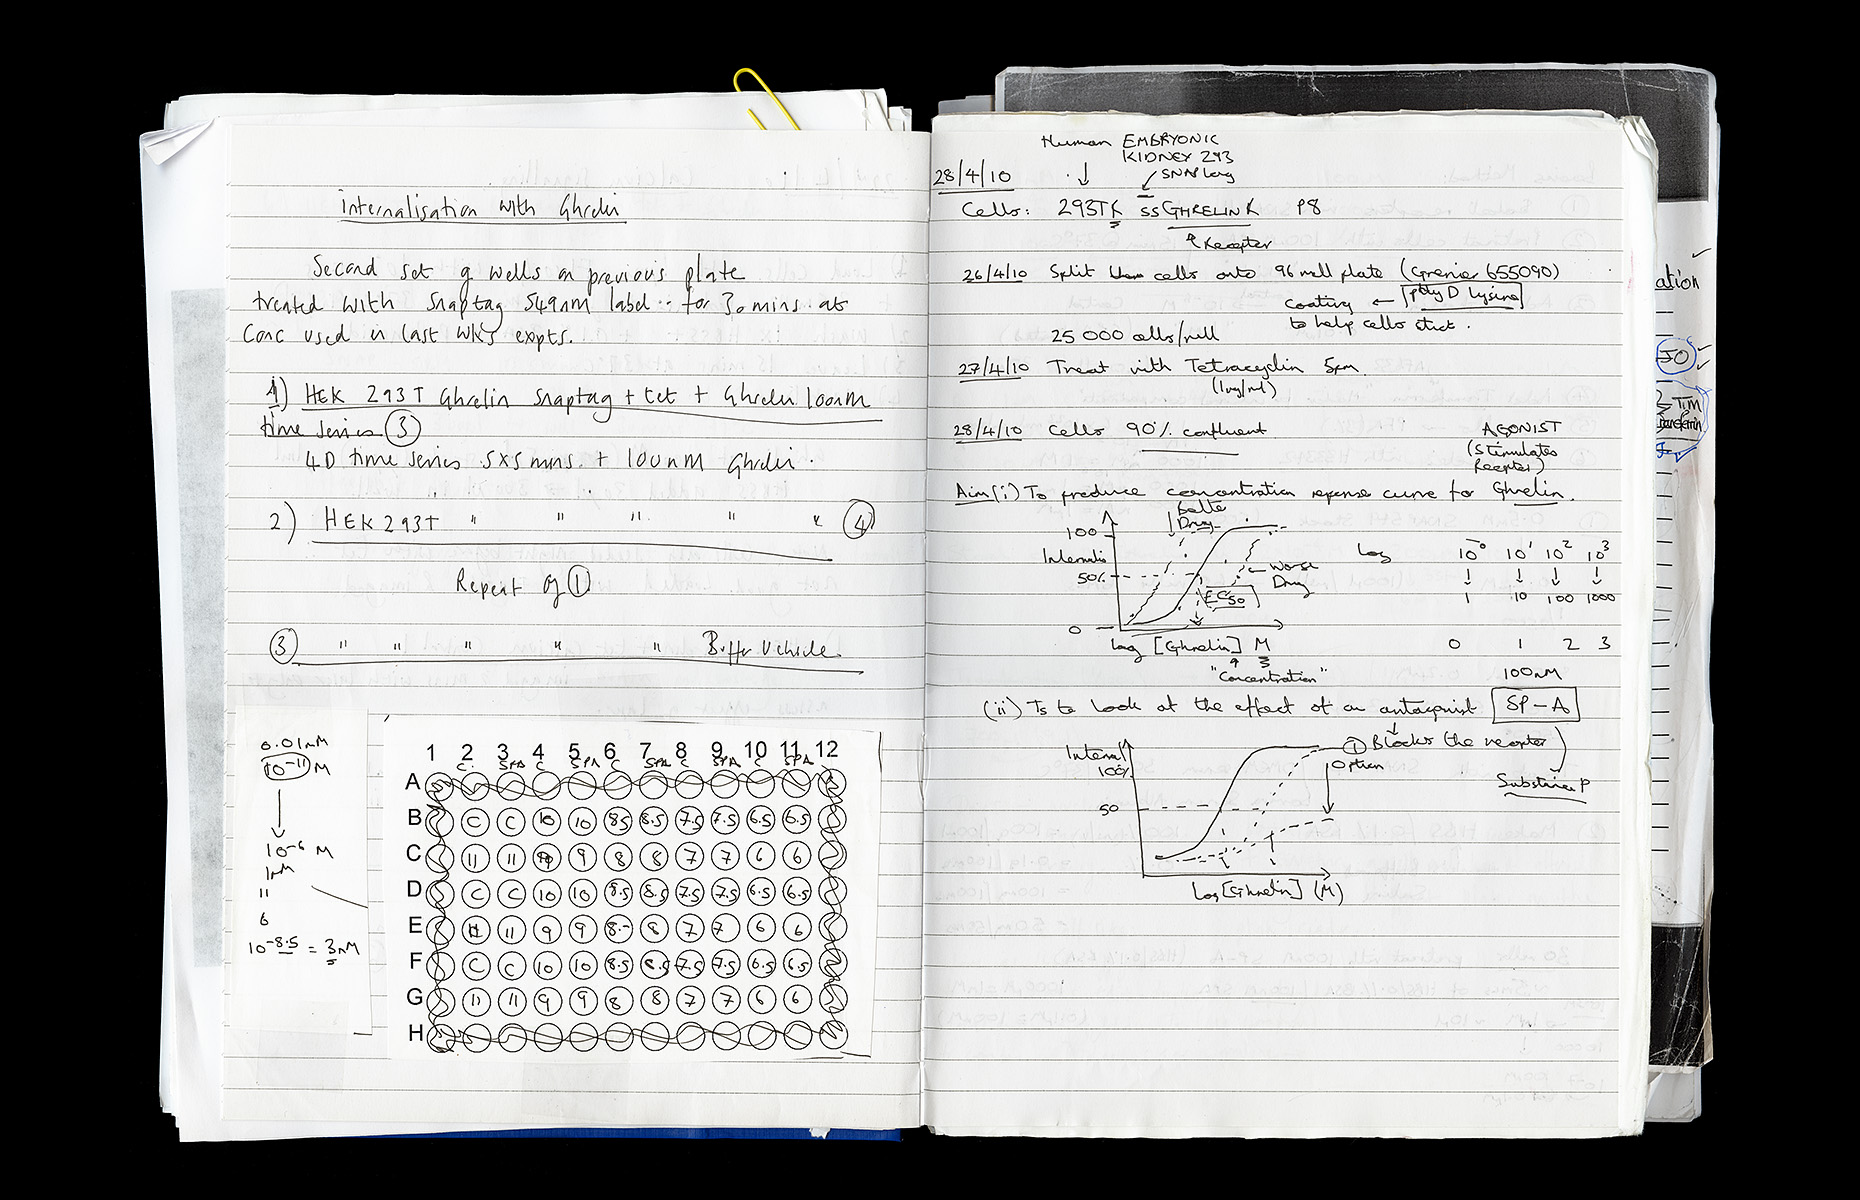 internalisation with Ghrelin
Second set of wells on previous plate
treated with Snaptag 549nm label for 30 mins at
conc used in last wks expts.
1) HEK 293T Ghrelin Snaptag + tet + Ghrelin 100nM
time series ③
4D time series 5x5 mins. + 100nM Ghrelin.
2) HEK 293T " " " " " ④
Repeat of ①
③ " " " " " Buffer Vehicle
0.01nM
10⁻¹¹ M
10⁻⁶ M
1µM
11
6
10⁻⁸·⁵ = 3nM
1 2 3 4 5 6 7 8 9 10 11 12
C. SPA C SPA C SPA C SPA C SPA
A
B C C 10 10 8.5 8.5 7.5 7.5 6.5 6.5
C 11 11 9 8 8 7 7 6 6
D C C 10 10 8.5 8.5 7.5 7.5 6.5 6.5
E 11 11 9 9 8 8 7 7 6 6
F C C 10 10 8.5 8.5 7.5 7.5 6.5 6.5
G 11 11 9 9 8 8 7 7 6 6
H
Human EMBRYONIC
KIDNEY 293
28/4/10 SNAP tag
Cells: 293TR SSGHRELINR P8
Receptor
26/4/10 Split cells onto 96 well plate (Greiner 655090)
coating ← Poly D lysine
to help cells stick.
25 000 cells/well
27/4/10 Treat with Tetracyclin 5µm
(1ug/ml)
28/4/10 Cells 90% confluent
AGONIST
(Stimulates
Receptor)
Aim (i) To produce concentration reponse curve for Ghrelin.
Better
Drug
100
Internalis
50%
0
← Worse
Drug
EC50
log [Ghrelin] M
"Concentration"
Log 10⁰ 10¹ 10² 10³
1 10 100 1000
0 1 2 3
100nM
(ii) Is to look at the effect of an antagonist SP-A
① Blocks the receptor
Option
Substance P
Internal
100%
50
log [Ghrelin] (M)
ation
JO
TIM